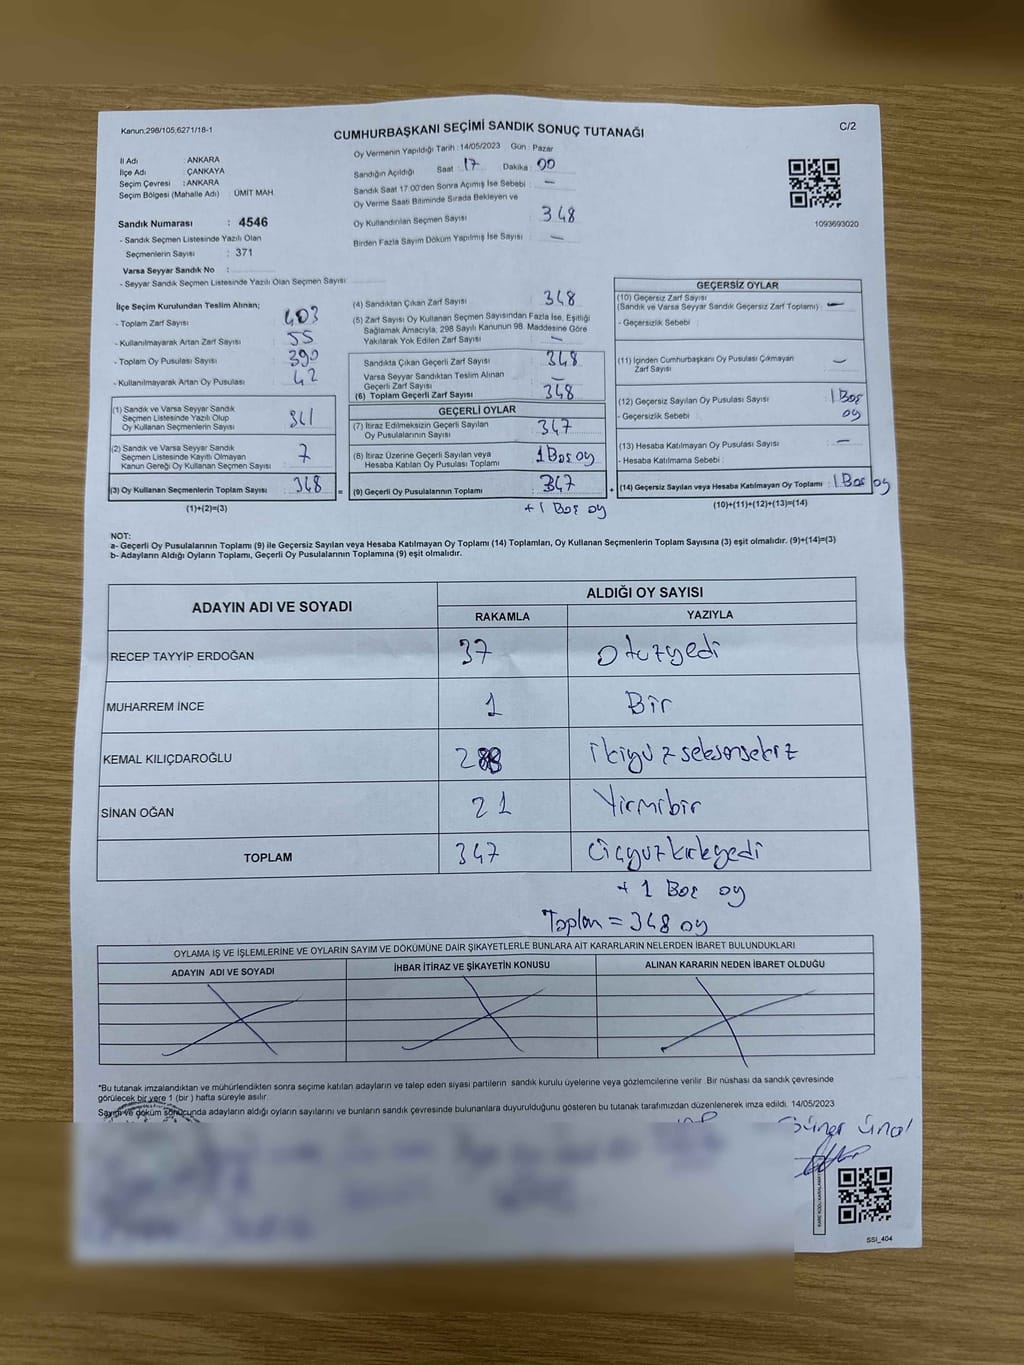 Kanun;298/105,6271/18-1
CUMHURBAŞKANI SEÇİMİ SANDIK SONUÇ TUTANAĞI
C/2
İl Adı : ANKARA
İlçe Adı : ÇANKAYA
Seçim Çevresi : ANKARA
Seçim Bölgesi (Mahalle Adı) : ÜMİT MAH.
Sandık Numarası : 4546
- Sandık Seçmen Listesinde Yazılı Olan
Seçmenlerin Sayısı : 371
Varsa Seyyar Sandık No :
- Seyyar Sandık Seçmen Listesinde Yazılı Olan Seçmen Sayısı :
Oy Vermenin Yapıldığı Tarih : 14/05/2023 Gün : Pazar
Sandığın Açıldığı Saat : 17 Dakika : 00
Sandık Saat 17:00'den Sonra Açımış İse Sebebi : —
Oy Verme Saati Bitiminde Sırada Bekleyen ve
Oy Kullandırılan Seçmen Sayısı 348
Birden Fazla Sayım Döküm Yapılmış İse Sayısı : —
1093693020
İlçe Seçim Kurulundan Teslim Alınan;
- Toplam Zarf Sayısı : 403
- Kullanılmayarak Artan Zarf Sayısı : 55
- Toplam Oy Pusulası Sayısı : 390
- Kullanılmayarak Artan Oy Pusulası : 42
(1) Sandık ve Varsa Seyyar Sandık
Seçmen Listesinde Yazılı Olup
Oy Kullanan Seçmenlerin Sayısı : 341
(2) Sandık ve Varsa Seyyar Sandık
Seçmen Listesinde Kayıtlı Olmayan
Kanun Gereği Oy Kullanan Seçmen Sayısı : 7
(3) Oy Kullanan Seçmenlerin Toplam Sayısı : 348 =
(1)+(2)=(3)
(4) Sandıktan Çıkan Zarf Sayısı : 348
(5) Zarf Sayısı Oy Kullanan Seçmen Sayısından Fazla İse, Eşitliği
Sağlamak Amacıyla, 298 Sayılı Kanunun 98. Maddesine Göre
Yakılarak Yok Edilen Zarf Sayısı : —
Sandıkta Çıkan Geçerli Zarf Sayısı : 348
Varsa Seyyar Sandıktan Teslim Alınan
Geçerli Zarf Sayısı : —
(6) Toplam Geçerli Zarf Sayısı : 348
GEÇERLİ OYLAR
(7) İtiraz Edilmeksizin Geçerli Sayılan
Oy Pusulalarının Sayısı : 347
(8) İtiraz Üzerine Geçerli Sayılan veya
Hesaba Katılan Oy Pusulası Toplamı : 1 Boş oy
(9) Geçerli Oy Pusulalarının Toplamı : 347 +
+ 1 Boş oy
GEÇERSİZ OYLAR
(10) Geçersiz Zarf Sayısı
(Sandık ve Varsa Seyyar Sandık Geçersiz Zarf Toplamı) : —
- Geçersizlik Sebebi :
(11) İçinden Cumhurbaşkanı Oy Pusulası Çıkmayan
Zarf Sayısı : —
(12) Geçersiz Sayılan Oy Pusulası Sayısı : 1 Boş
oy
- Geçersizlik Sebebi :
(13) Hesaba Katılmayan Oy Pusulası Sayısı : —
- Hesaba Katılmama Sebebi :
(14) Geçersiz Sayılan veya Hesaba Katılmayan Oy Toplamı : 1 Boş oy
(10)+(11)+(12)+(13)=(14)
NOT:
a- Geçerli Oy Pusulalarının Toplamı (9) ile Geçersiz Sayılan veya Hesaba Katılmayan Oy Toplamı (14) Toplamları, Oy Kullanan Seçmenlerin Toplam Sayısına (3) eşit olmalıdır. (9)+(14)=(3)
b- Adayların Aldığı Oyların Toplamı, Geçerli Oy Pusulalarının Toplamına (9) eşit olmalıdır.
ADAYIN ADI VE SOYADI
ALDIĞI OY SAYISI
RAKAMLA YAZIYLA
RECEP TAYYİP ERDOĞAN 37 Otuzyedi
MUHARREM İNCE 1 Bir
KEMAL KILIÇDAROĞLU 288 ikiyüz seksensekiz
SİNAN OĞAN 21 Yirmibir
TOPLAM 347 üçyüzkırkyedi
+ 1 Boş oy
Toplam = 348 oy
OYLAMA İŞ VE İŞLEMLERİNE VE OYLARIN SAYIM VE DÖKÜMÜNE DAİR ŞİKAYETLERLE BUNLARA AİT KARARLARIN NELERDEN İBARET BULUNDUKLARI
ADAYIN ADI VE SOYADI İHBAR İTİRAZ VE ŞİKAYETİN KONUSU ALINAN KARARIN NEDEN İBARET OLDUĞU
*Bu tutanak imzalandıktan ve mühürlendikten sonra seçime katılan adayların ve talep eden siyasi partilerin sandık kurulu üyelerine veya gözlemcilerine verilir. Bir nüshası da sandık çevresinde
görülecek bir yere 1 (bir) hafta süreyle asılır.
Sayım ve döküm sonucunda adayların aldığı oyların sayılarını ve bunların sandık çevresinde bulunanlara duyurulduğunu gösteren bu tutanak tarafımızdan düzenlenerek imza edildi. 14/05/2023
Güner Ünal
SSI_404